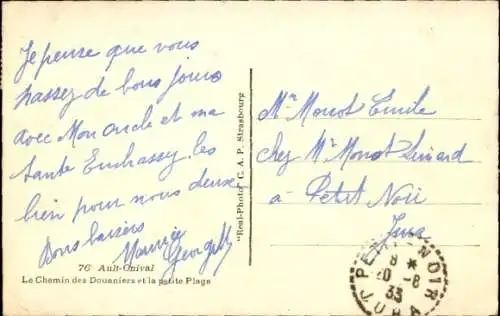 Je pense que vous
passez de bons jours
avec Mon oncle et ma
tante Embrassez les
bien pour nous deux
Bons baisers
Maurice
Georgette
76 Ault-Onival
Le Chemin des Douaniers et la petite Plage
"Real-Photo" C. A. P. Strasbourg
Mr Monot Emile
chez Mr Monot Linard
à Petit Noir
Jura
PETIT-NOIR
8 *
20 -8
33
JURA